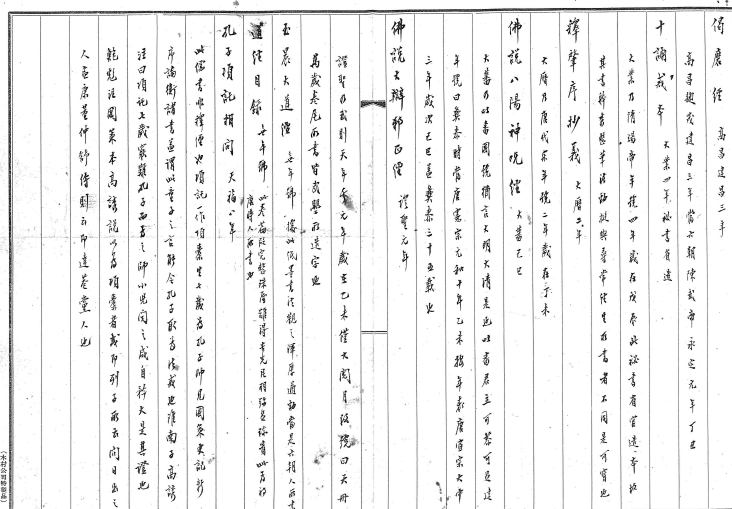 倘磨經 高昌建昌三年
高昌麴茂建昌三年當六朝陳武帝永定元年丁丑
十誦戒本 大業四年秘書省造
大業乃隋煬帝年號四年歲在戊辰此秘書省官造本故
其書幹書整筆活動娥與尋常經生所書者不同是可寳也
釋肇序抄義 大曆二年
大曆乃唐代宗年號二年歲在丁未
佛說八陽神咒經 大蕃乙巳
大蕃乃吐蕃國號猶言大明大清是也吐蕃君主可黎可足建
年號曰彝泰時當唐憲宗元和十年乙未按年表唐宣宗大中
三年歲次己巳蓋彝泰三十五載也
佛說大辯邪正經 證聖元年
證聖乃武則天年號元年歲在乙未僅大閱月改號曰天冊
萬歲卷尾而書皆武曌所造字也
玉晨大道經 每年佛 據紙墨書法觀之渾厚遒勁當是六朝人所書
道經目錄 每年佛 此卷首段完整殊屬難得
唐時人所書也
孔子項託相問 天福八年
此俗書非釋經也項託一作項橐生七歲為孔子師見國策史記新
序論衡諸書蓋謂以童子之言能令孔子取為法戒也淮南子高誘
注曰項託七歲窮難孔子而為之師小兒聞之咸自矜大是其證也
鮑彪注國策本高誘說以為項橐者或即列子所云問日出之
人孟康董仲舒傳注云即達巷黨人也
(木村公司特製品)